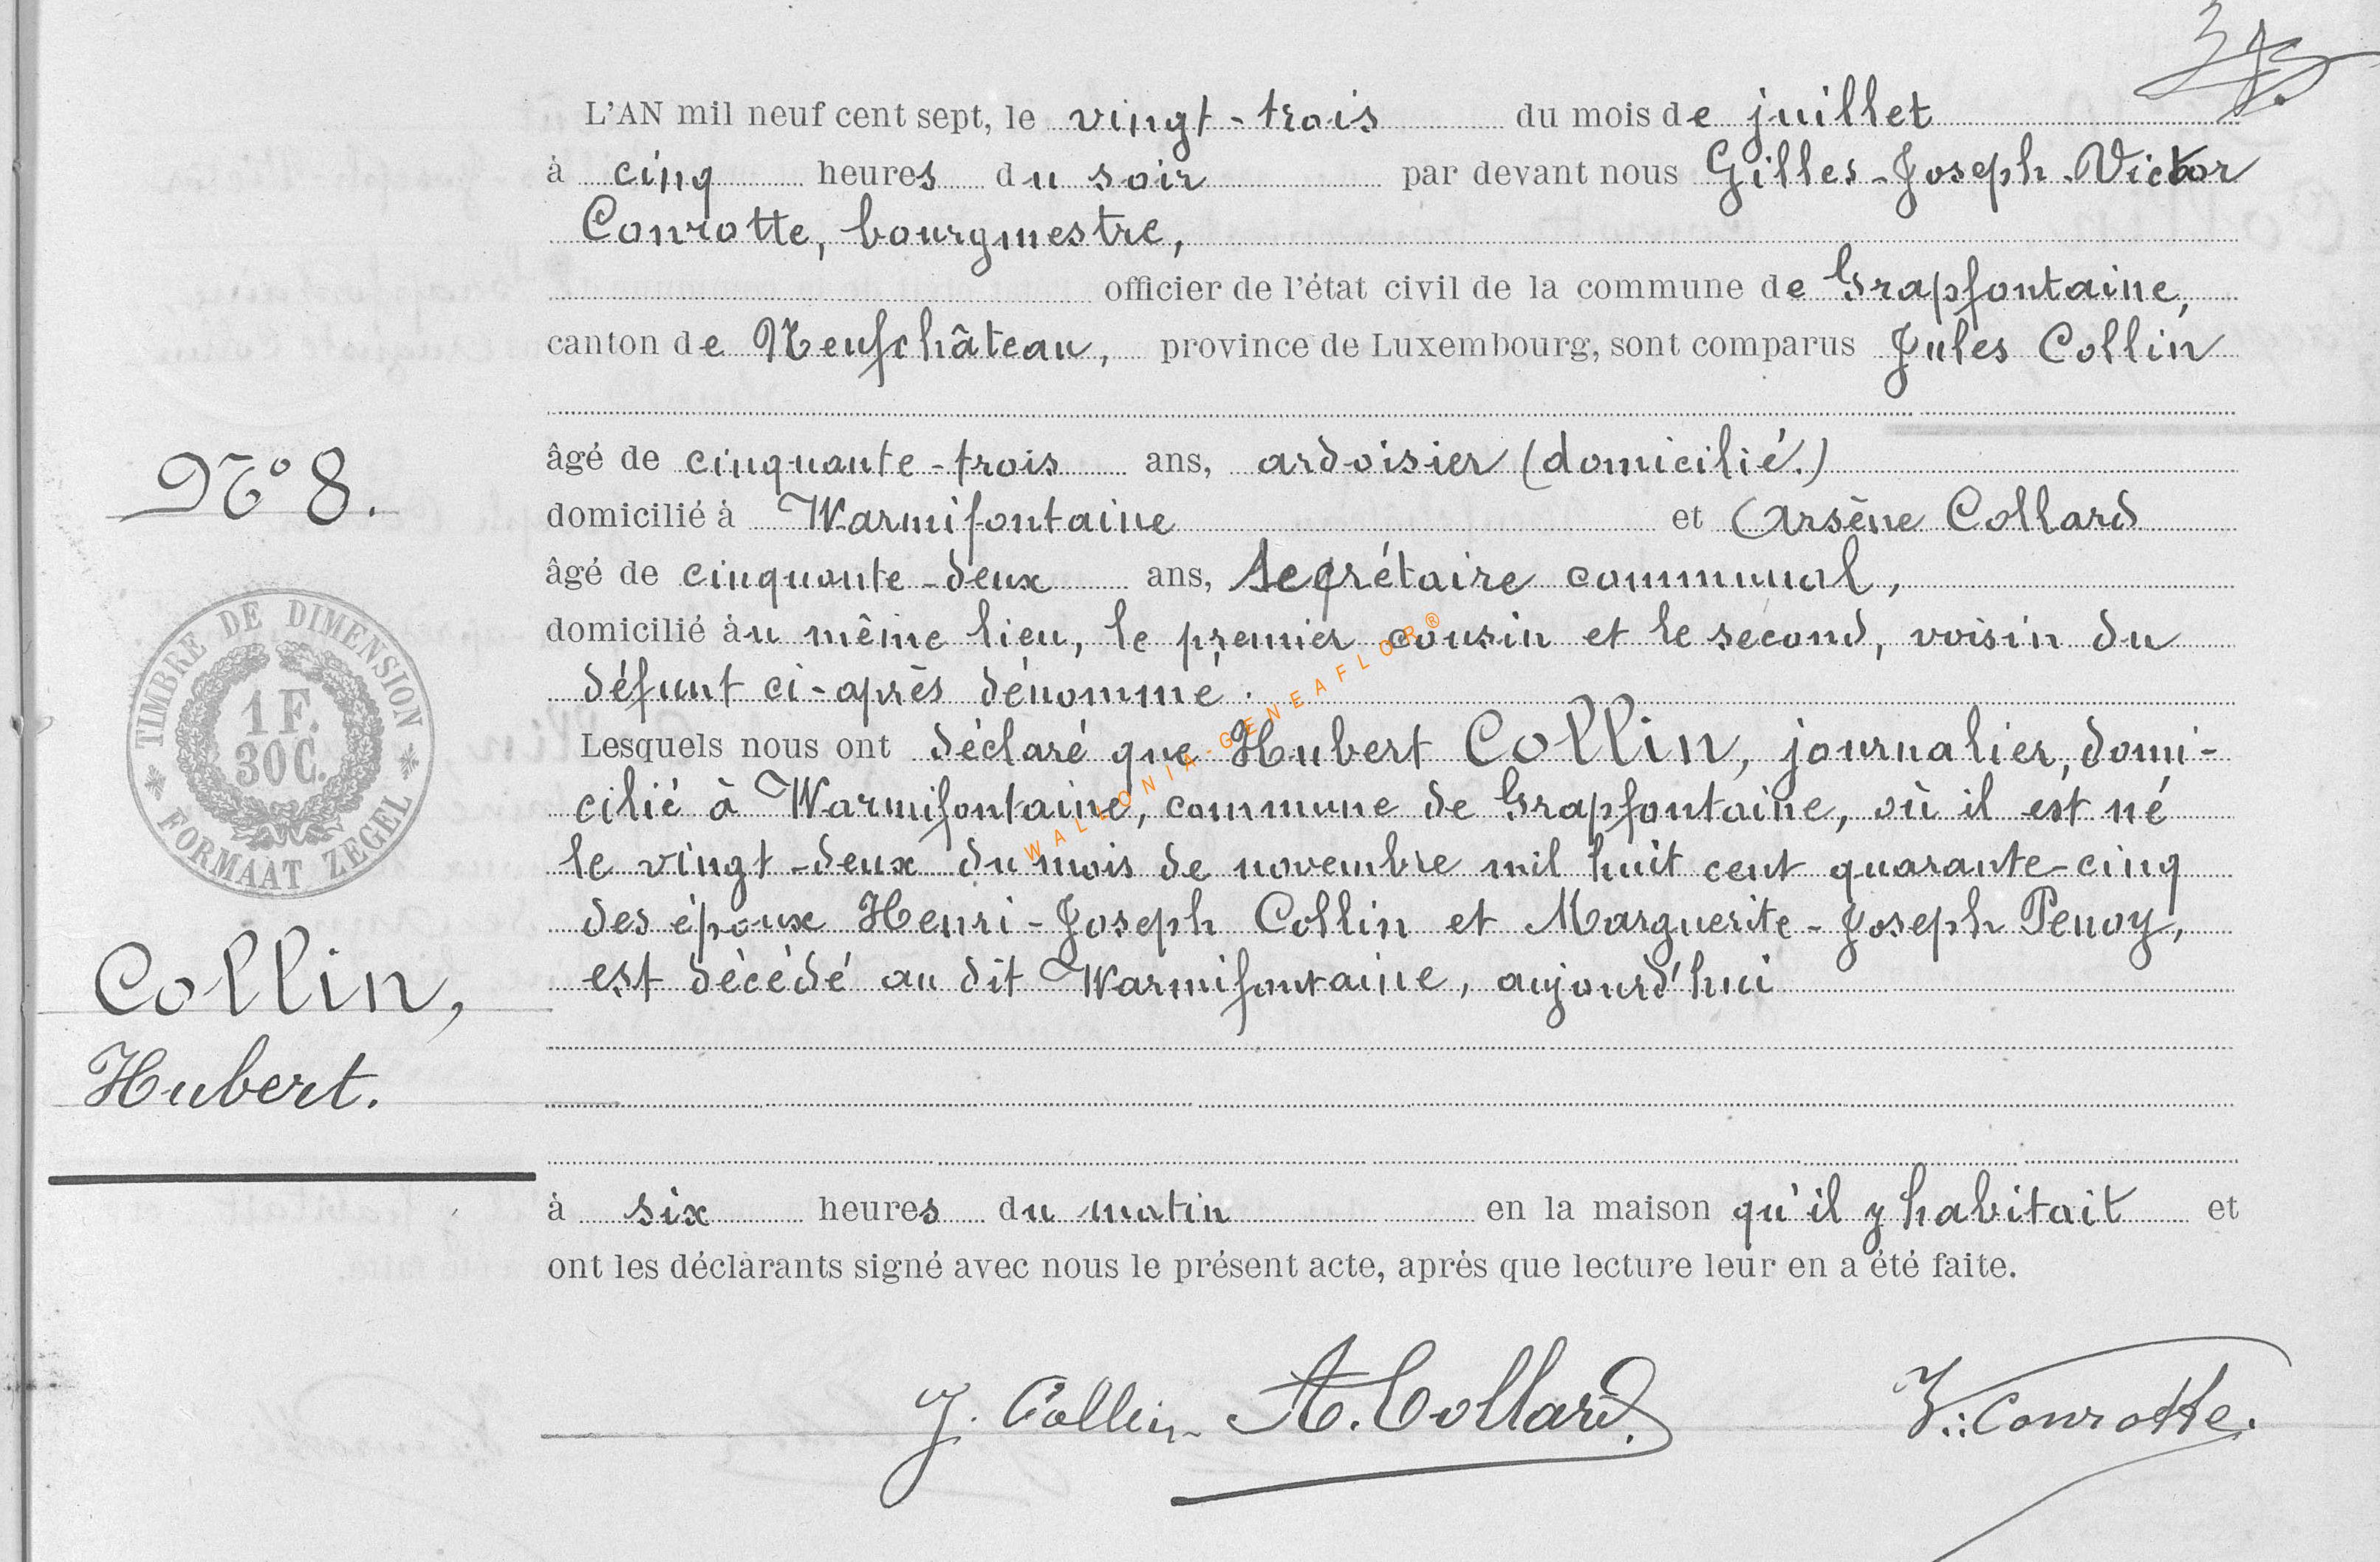 L'AN mil neuf cent sept, le vingt-trois du mois de juillet
à cinq heures du soir par devant nous Gilles-Joseph-Victor
Conrotte, bourgmestre,
officier de l'état civil de la commune de Grapfontaine,
canton de Neufchâteau, province de Luxembourg, sont comparus Jules Collin
âgé de cinquante-trois ans, ardoisier (domicilié.)
N° 8.
domicilié à Warmifontaine et Arsène Collard
âgé de cinquante-deux ans, secrétaire communal,
domicilié àu même lieu, le premier cousin et le second, voisin du
défunt ci-après dénommé.
TIMBRE DE DIMENSION
1 F.
30 C.
FORMAAT ZEGEL
Lesquels nous ont déclaré que Hubert Collin, journalier, domi-
cilié à Warmifontaine, commune de Grapfontaine, où il est né
le vingt-deux du mois de novembre mil huit cent quarante-cinq
des époux Henri-Joseph Collin et Marguerite-Joseph Penoy,
est décédé au dit Warmifontaine, aujourd'hui
Collin,
Hubert.
WALLONIA-GENEAFLOR®
à six heures du matin en la maison qu'il y habitait et
ont les déclarants signé avec nous le présent acte, après que lecture leur en a été faite.
J. Collin A. Collard V. Conrotte.